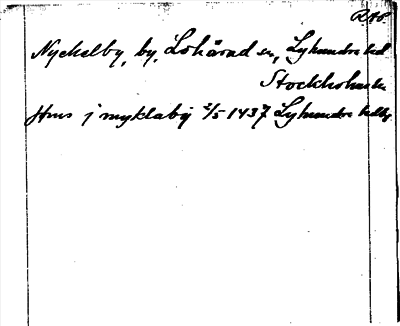 Nyckelby, by, Lohärad sn, Lyhundra hd
Stockholms l.
Hus j myklaby 2/5 1437 Lyhundra hdbr